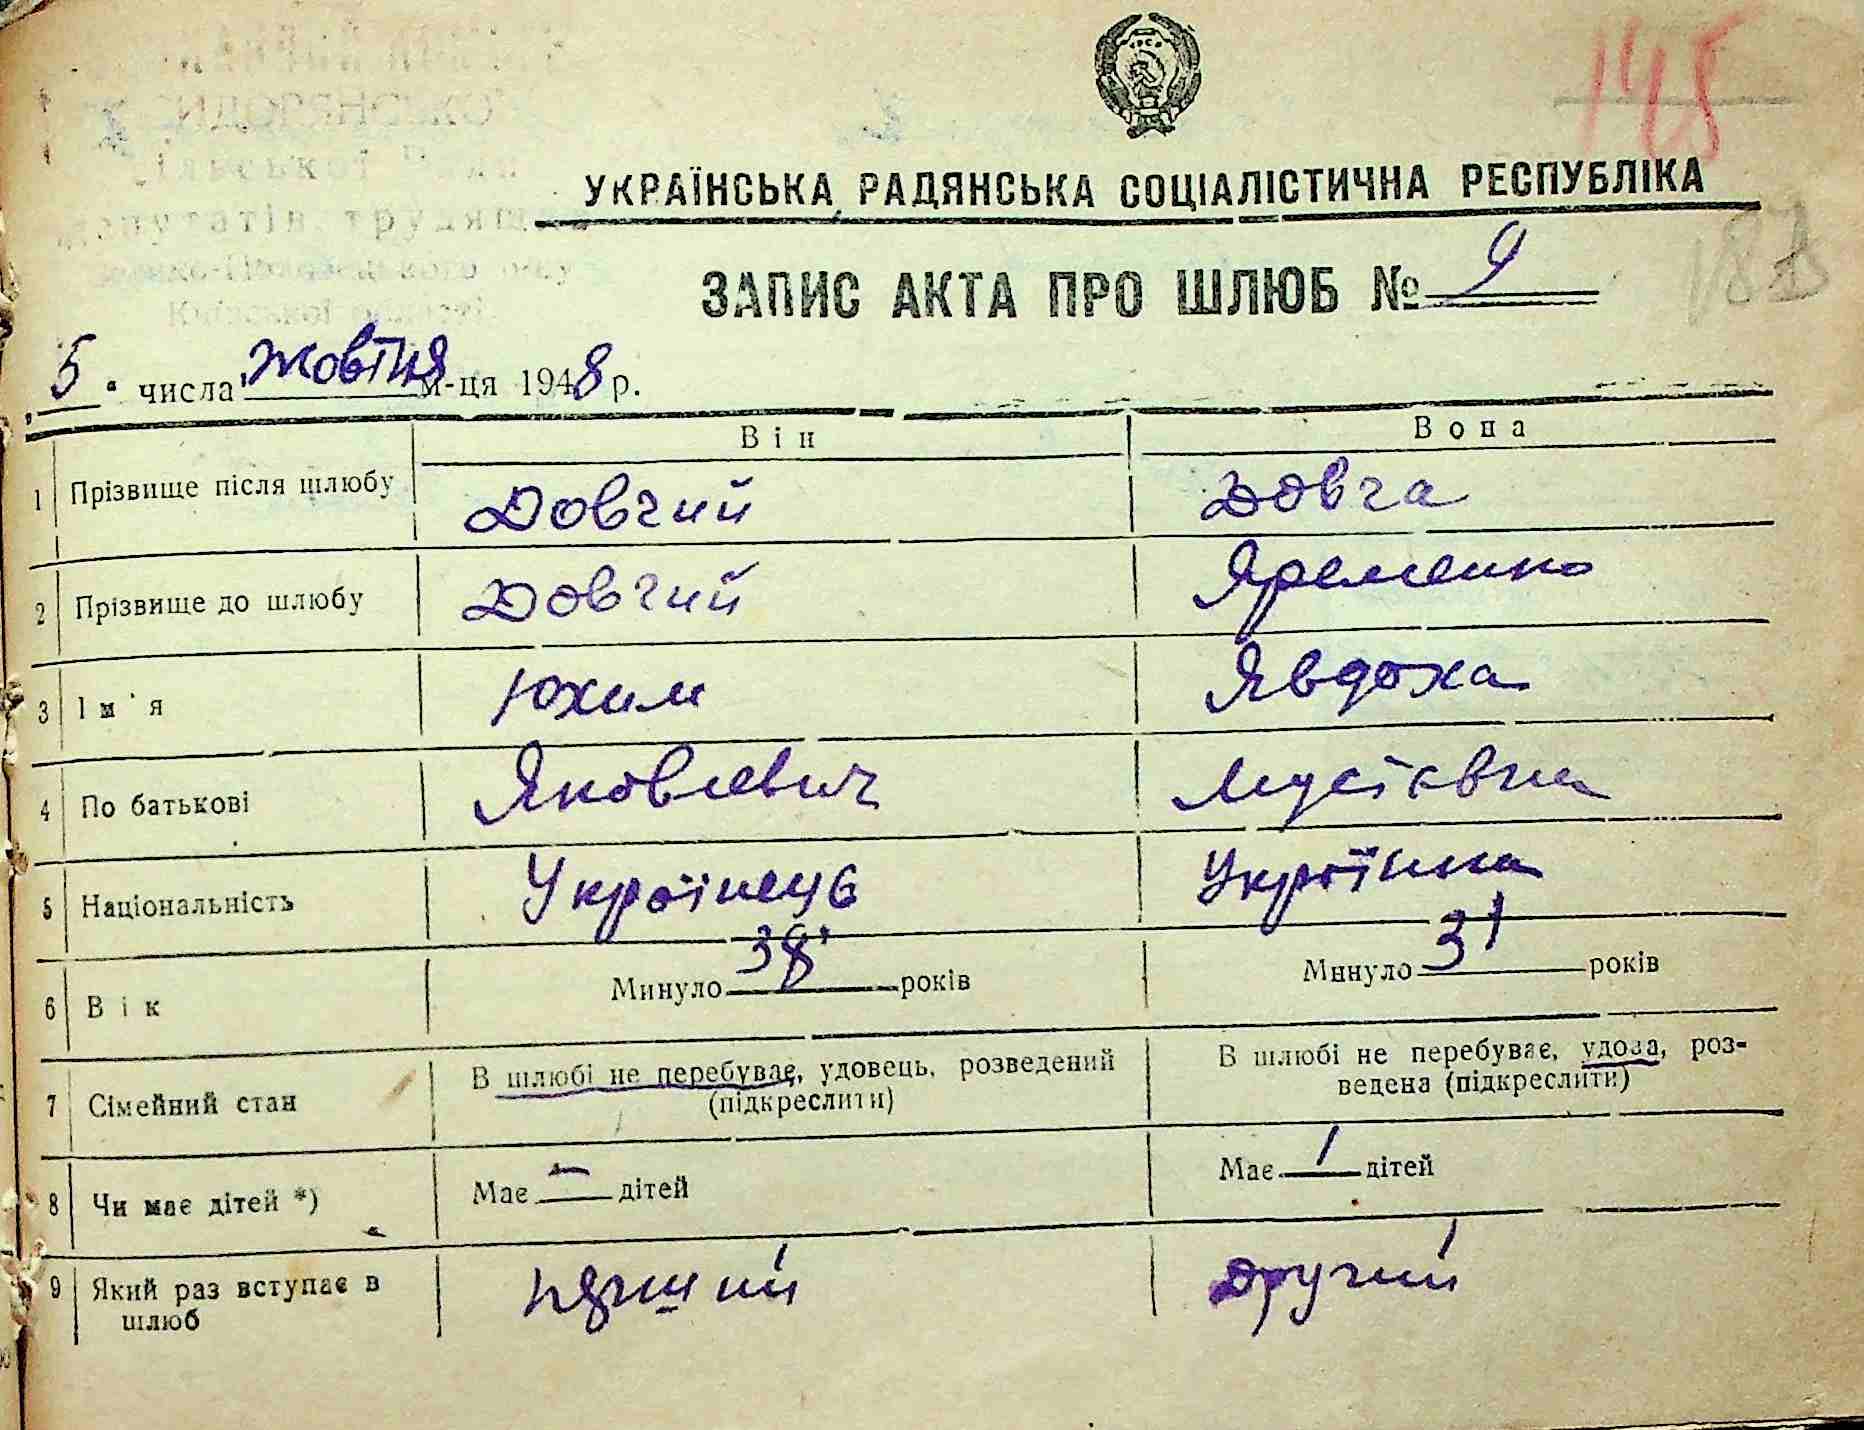 145
УКРАЇНСЬКА РАДЯНСЬКА СОЦІАЛІСТИЧНА РЕСПУБЛІКА
ЗАПИС АКТА ПРО ШЛЮБ № 9
187
„5" числа жовтня м-ця 1948 р.
Він Вона
1 Прізвище після шлюбу Довгий Довга
2 Прізвище до шлюбу Довгий Яременко
3 Ім'я Юхим Явдоха
4 По батькові Яковлевич Мусіївна
5 Національність Українець Українка
6 Вік Минуло 38 років Минуло 31 років
7 Сімейний стан В шлюбі не перебуває, удовець, розведений (підкреслити) В шлюбі не перебуває, удова, роз-
ведена (підкреслити)
8 Чи має дітей *) Має – дітей Має 1 дітей
9 Який раз вступає в
шлюб другий